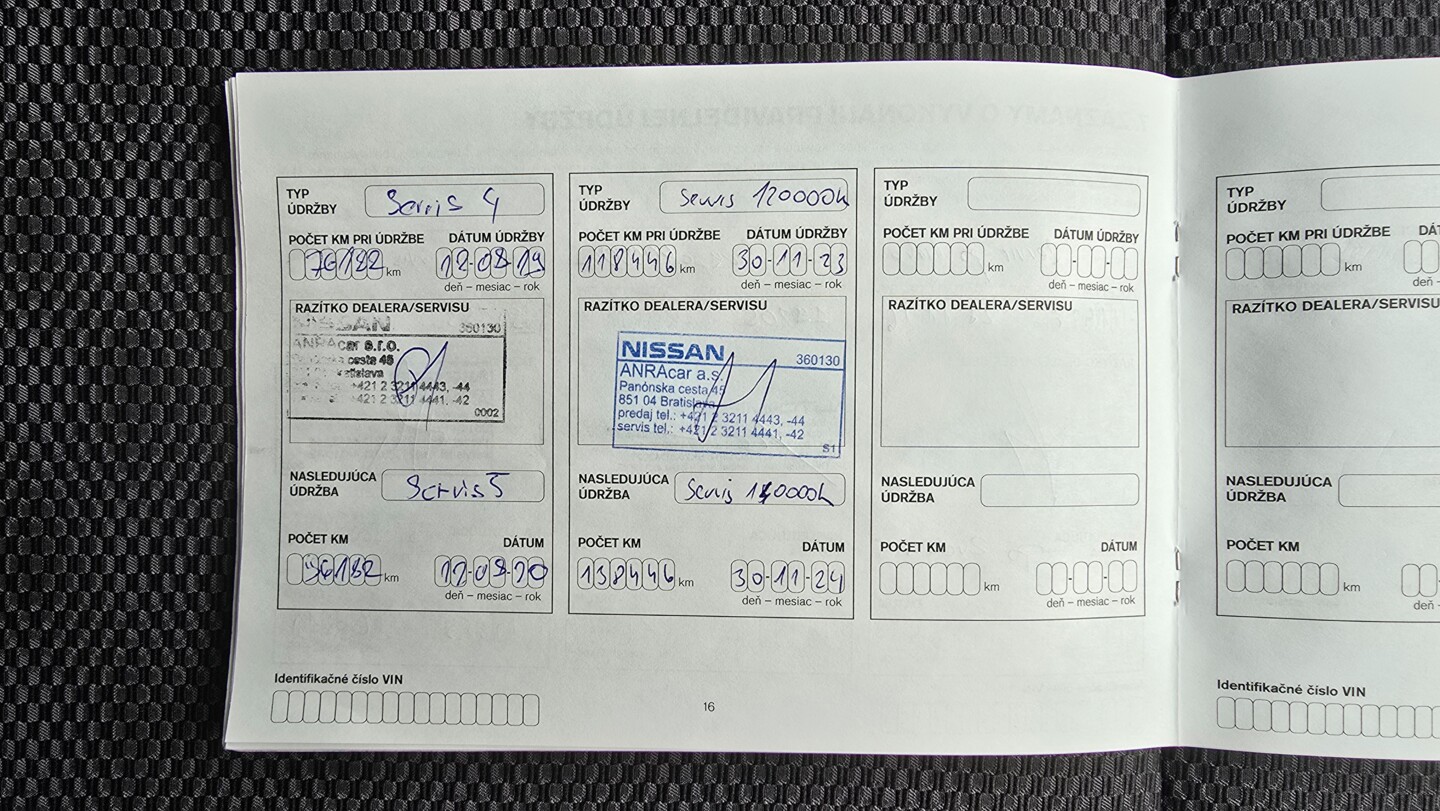 TYP
ÚDRŽBY
Servis 4
POČET KM PRI ÚDRŽBE
DÁTUM ÚDRŽBY
76182 km
12-08-19
deň – mesiac – rok
RAZÍTKO DEALERA/SERVISU
NISSAN
360130
ANRAcar s.r.o.
cesta 45
+421 2 3211 4443, -44
+421 2 3211 4441, -42
0002
NASLEDUJÚCA
ÚDRŽBA
Servis 5
POČET KM
DÁTUM
96182 km
12-08-20
deň – mesiac – rok
TYP
ÚDRŽBY
Servis 120000k
POČET KM PRI ÚDRŽBE
DÁTUM ÚDRŽBY
118446 km
30-11-23
deň – mesiac – rok
RAZÍTKO DEALERA/SERVISU
NISSAN
360130
ANRAcar a.s.
Panónska cesta 45
851 04 Bratislava
predaj tel.: +421 2 3211 4443, -44
servis tel.: +421 2 3211 4441, -42
S1
NASLEDUJÚCA
ÚDRŽBA
Servis 140000k
POČET KM
DÁTUM
138446 km
30-11-24
deň – mesiac – rok
TYP
ÚDRŽBY
POČET KM PRI ÚDRŽBE
DÁTUM ÚDRŽBY
km
deň – mesiac – rok
RAZÍTKO DEALERA/SERVISU
NASLEDUJÚCA
ÚDRŽBA
POČET KM
DÁTUM
km
deň – mesiac – rok
Identifikačné číslo VIN
16
TYP
ÚDRŽBY
POČET KM PRI ÚDRŽBE
km
deň –
RAZÍTKO DEALERA/SERVISU
NASLEDUJÚCA
ÚDRŽBA
POČET KM
km
deň –
Identifikačné číslo VIN